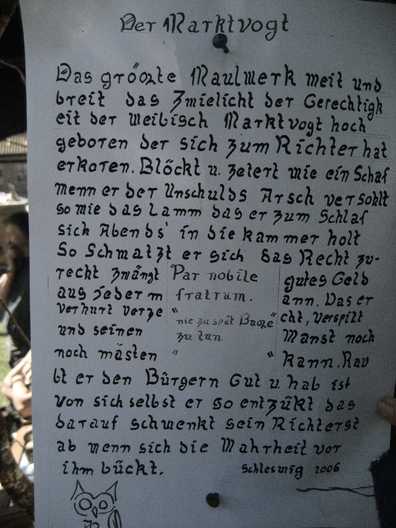 Der Marktvogt
Das gröszte Maulwerk weit und
breit das Zwielicht der Gerechtigk
eit der weibisch Marktvogt hoch
geboren der sich zum Richter hat
erkoren. Blöckt u. zetert wie ein Schaf
wenn er der Unschulds Arsch versohlt
so wie das Lamm das er zum Schlaf
sich Abends' in die kammer holt
So Schmatzt er sich das Recht zu-
recht zwängt Par nobile gutes Geld
aus jederm fratrum. ann. Das er
verhurt verze " nie zu spät Buße" cht, verspilt
und seinen zu tun. Wanst noch
noch mästen " " kann. Rau
bt er den Bürgern Gut u hab ist
von sich selbst er so entzükt das
darauf schwenkt sein Richterst
ab wenn sich die Wahrheit vor
ihm bückt. Schleswig 2006